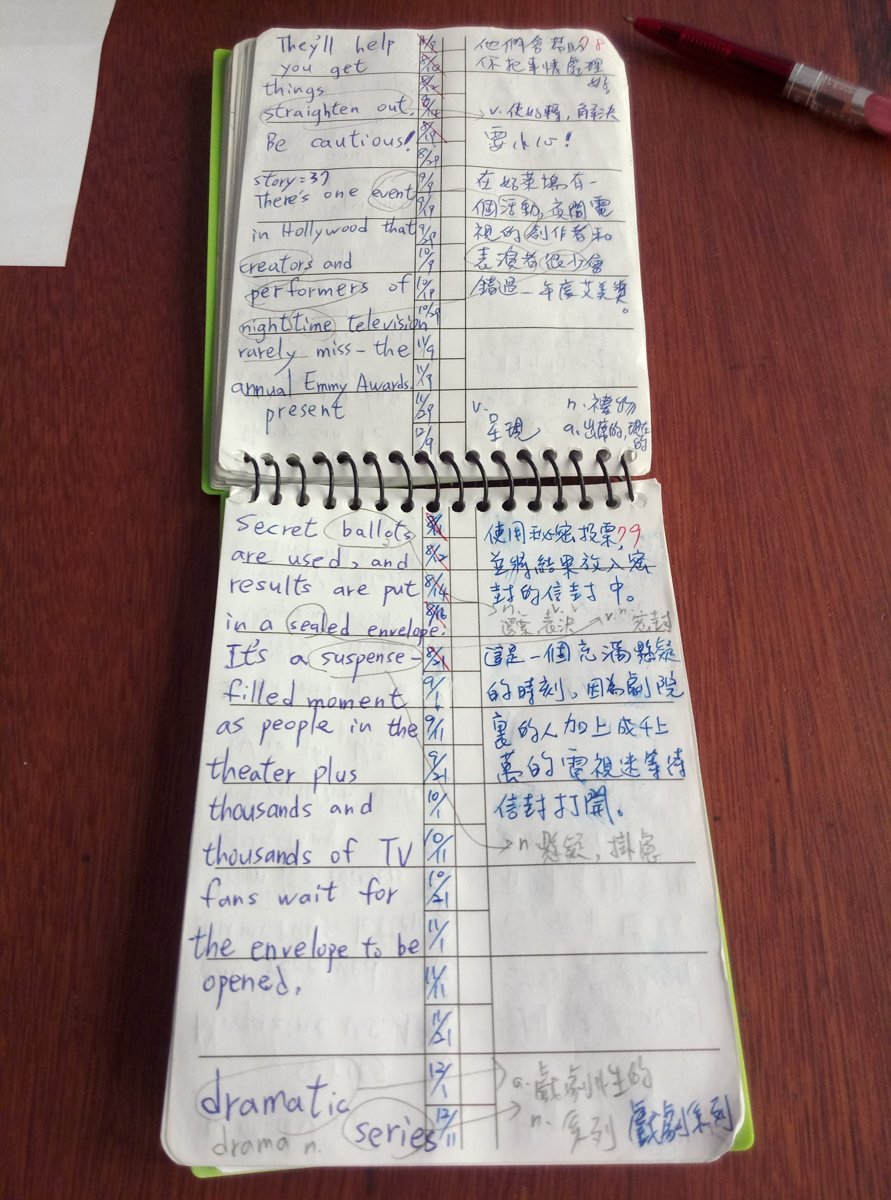 They'll help
you get
things
straighten out.
Be cautious!
story=37
There's one event
in Hollywood that
creators and
performers of
nighttime television
rarely miss-the
annual Emmy Awards.
present
8/29
9/9
9/19
9/29
10/9
10/19
10/29
11/9
11/19
11/29
12/9
他們會幫助 78
你把事情處理
好。
v. 使好轉,解決
要小心!
在好萊塢有一
個活動,夜間電
視的創作者和
表演者很少會
錯過一年度艾美獎
。
v. 呈現
n. 禮物
a. 出席的,現在的
Secret ballots
are used, and
results are put
in a sealed envelope.
It's a suspense-
filled moment
as people in the
theater plus
thousands and
thousands of TV
fans wait for
the envelope to be
opened.
dramatic
drama n.
series
8/12
8/14
8/16
8/21
9/1
9/11
9/21
10/1
10/11
10/21
11/1
11/11
11/21
12/1
12/11
使用秘密投票, 79
並將結果放入密
封的信封中。
n. v. 表決
v. n. 密封
這是一個充滿懸疑
的時刻,因為劇院
裏的人加上成千上
萬的電視迷等待
信封打開。
n. 懸疑,掛慮
a. 戲劇性的
n. 系列 戲劇系列